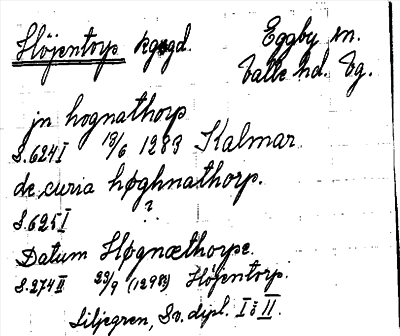 Höjentorp kgsgd. Eggby sn.
Valle hd. Vg.
jn hognathorp
S.624 I 13/6 1283 Kalmar
de curia høghnathorp.
S.625 I
Datum Høgnæthorpe.
S.274 II 23/9 (1298) Höjentorp.
Liljegren, Sv. dipl. I o II.